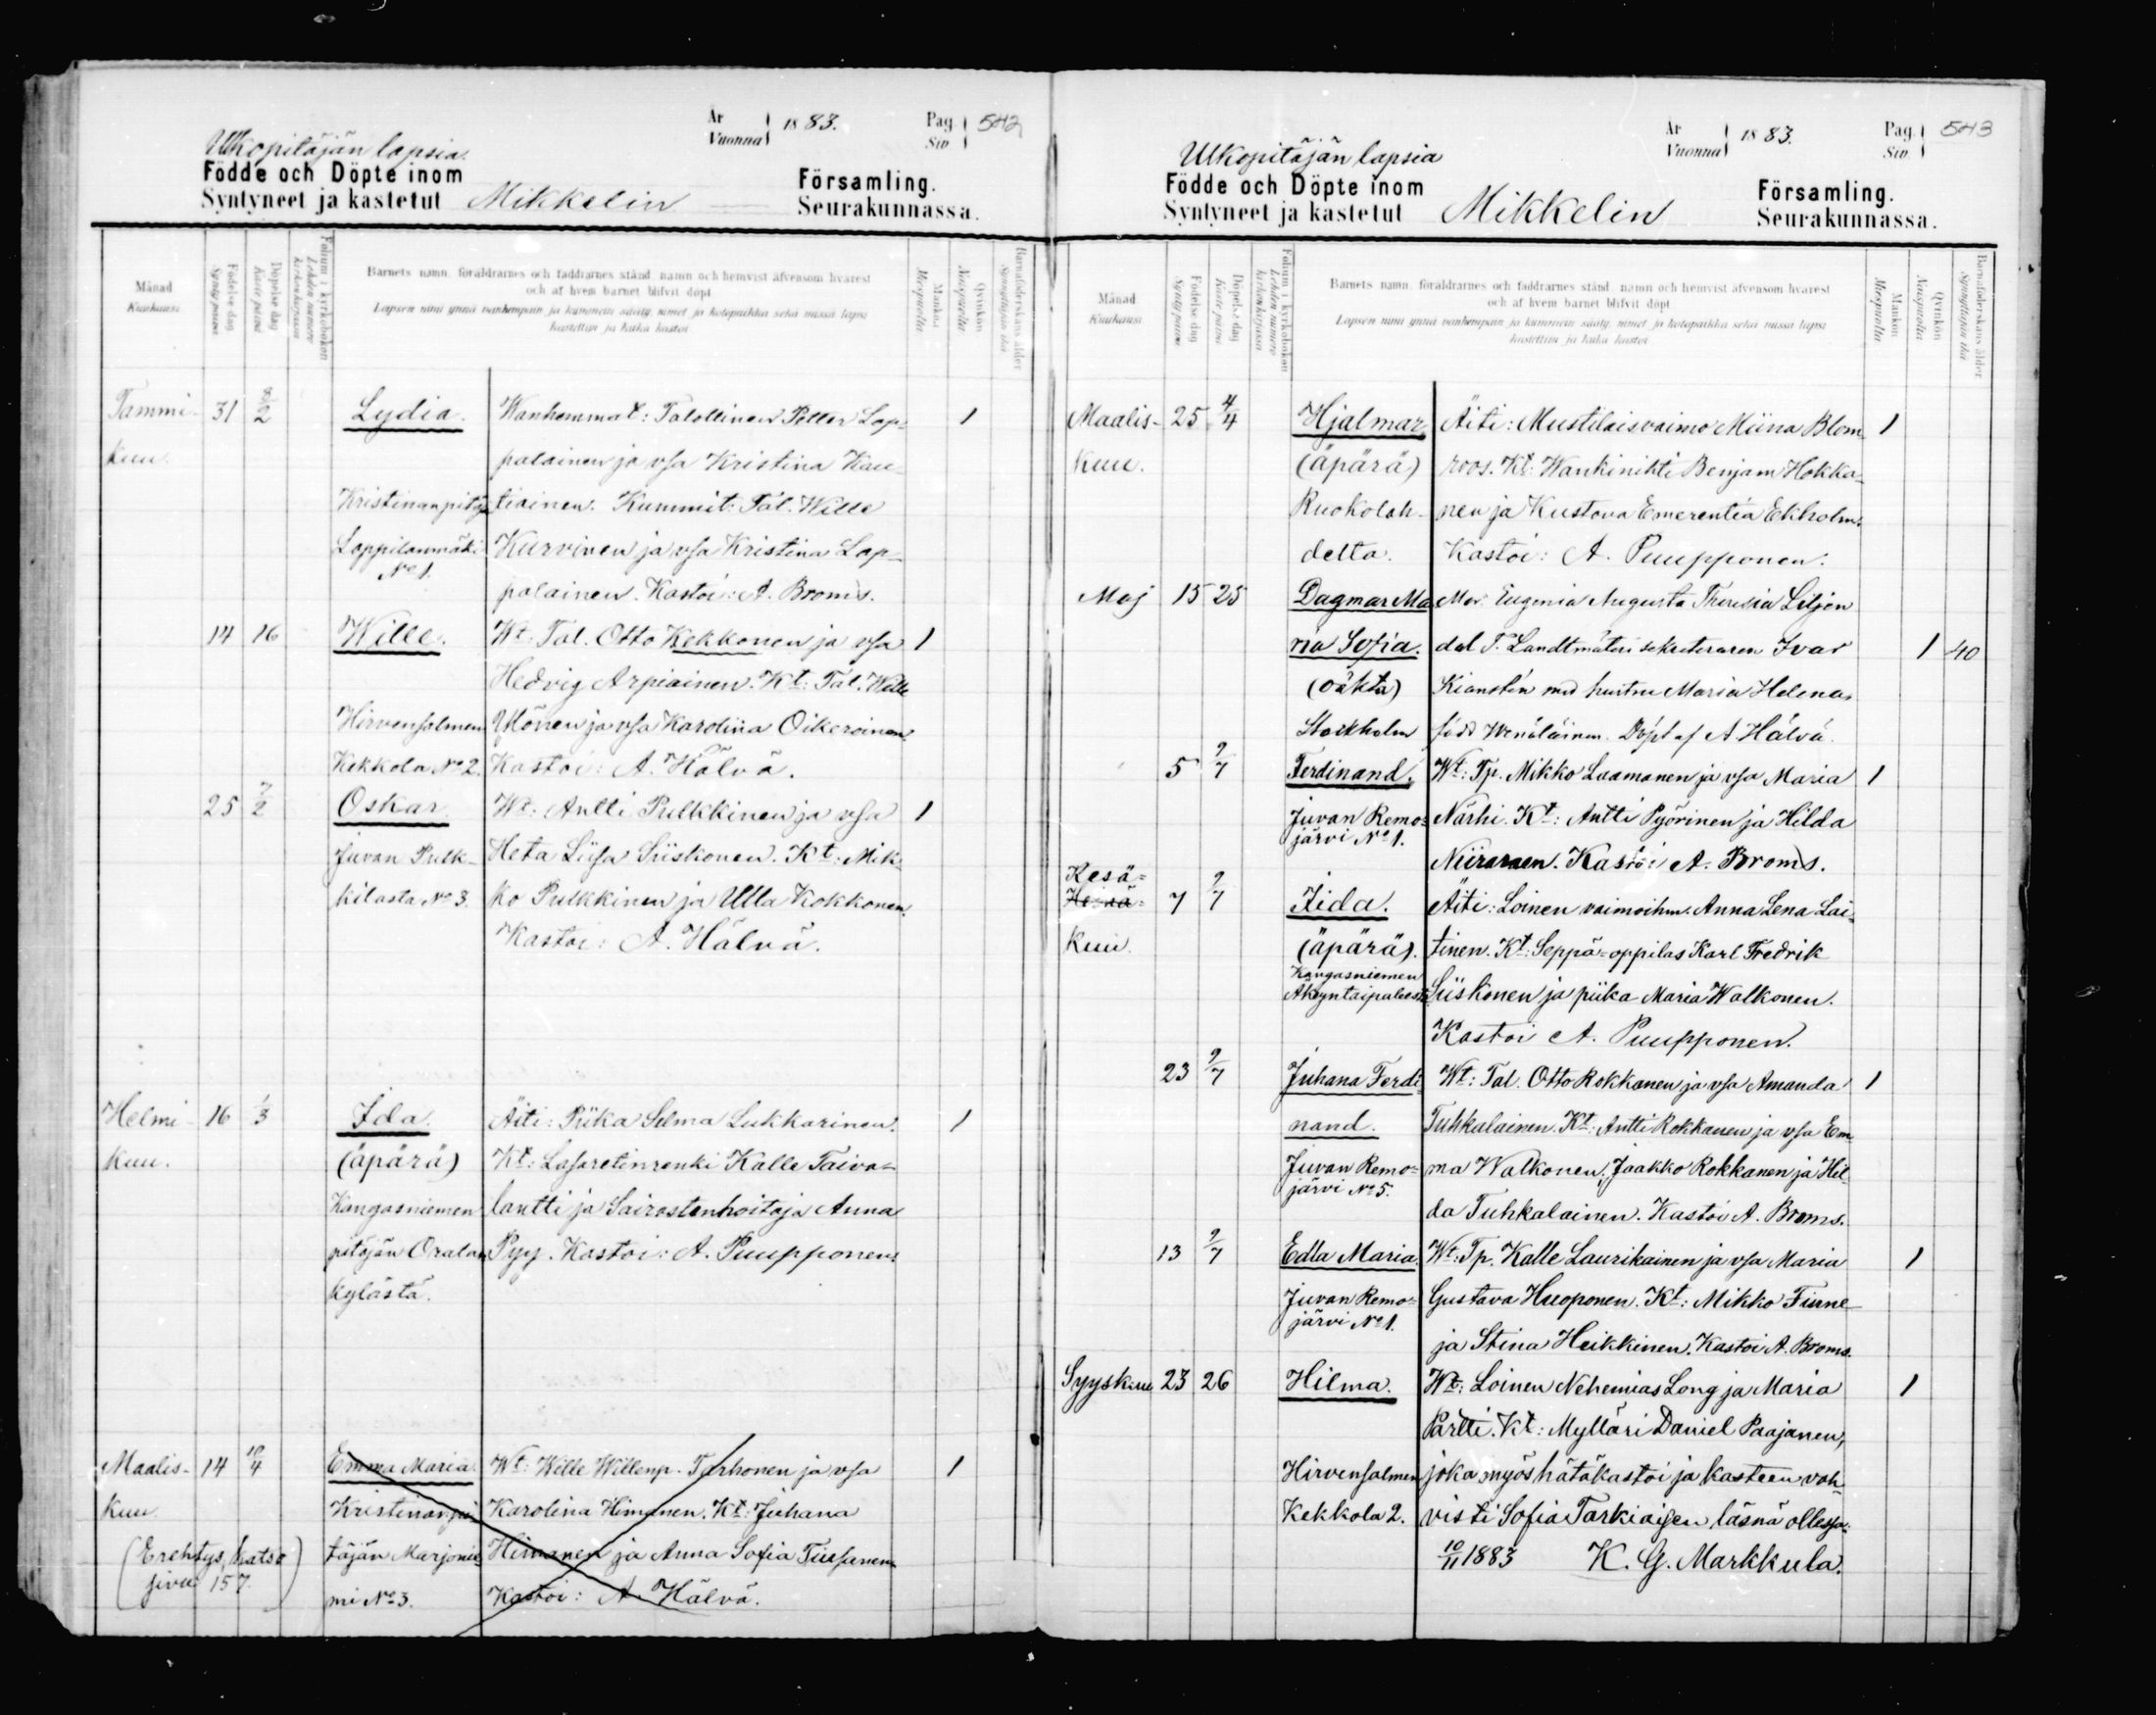 År Vuonna 1883. Pag. Siv. 542
Ulkopitäjän lapsia.
Födde och Döpte inom Församling.
Syntyneet ja kastetut Mikkelin Seurakunnassa.
Månad Kuukausi
Födelse dag Syntymäpäivä
Döpelse dag Kastepäivä
Folium i kyrkoboken Lehden numero kirkonkirjassa
Barnets namn, föräldrarnes och faddrarnes stånd, namn och hemvist äfvensom hvarest
och af hvem barnet blifvit döpt
Lapsen nimi ynnä vanhempain ja kummein sääty, nimet ja kotopaikka sekä missä lapsi
kastettiin ja kuka kastoi
Mankön Miespuolta
Qvinkön Naispuolta
Barnaföderskans ålder Synnyttäjän ikä
Tammi- 31 8/2 Lydia. Wanhemmat: Talollinen Petter Lap- 1
kuu. palainen ja vsa Kristina Kau-
Kristinanpitäjä tiainen. Kummit: Tal. Wille
Loppilanmäki Kurvinen ja vsa Kristina Lap-
No 1. palainen. Kastoi: A. Broms.
14 16 Wille. Wt. Tal. Otto Kekkonen ja vsa 1
Hedvig Arpiainen. Kt: Tal. Wille
Hirvensalmen Ylönen ja vsa Karoliina Oikeroinen.
Kekkola No 2. Kastoi: A. Hälvä.
25 7/2 Oskar. Wt: Antti Pulkkinen ja vsa 1
Juvan Pulk- Heta Liisa Siiskonen. Kt: Mik-
kilasta No 3. ko Pulkkinen ja Ulla Kokkonen.
Kastoi: A. Hälvä.
Helmi- 16 1/3 Ida. Äiti: Piika Selma Lukkarinen. 1
kuu. (äpärä) Kt: Lasaretinrenki Kalle Taiva-
Kangasniemen lantti ja Sairastenhoitaja Anna
pitäjän Oralan Pyy. Kastoi: A. Puupponen.
kylästä.
Maalis- 14 10/4 Emma Maria. Wt: Wille Willenp. Tarhonen ja vsa 1
kuu. Kristinanpi- Karolina Himanen. Kt: Juhana
(Erehtys, katso täjän Marjonie- Himanen ja Anna Sofia Tiusanen.
sivu 157.) mi No 3. Kastoi: A. Hälvä.
År Vuonna 1883. Pag. Siv. 543
Ulkopitäjän lapsia
Födde och Döpte inom Församling.
Syntyneet ja kastetut Mikkelin Seurakunnassa.
Månad Kuukausi
Födelse dag Syntymäpäivä
Döpelse dag Kastepäivä
Folium i kyrkoboken Lehden numero kirkonkirjassa
Barnets namn, föräldrarnes och faddrarnes stånd, namn och hemvist äfvensom hvarest
och af hvem barnet blifvit döpt
Lapsen nimi ynnä vanhempain ja kummein sääty, nimet ja kotopaikka sekä missä lapsi
kastettiin ja kuka kastoi
Mankön Miespuolta
Qvinkön Naispuolta
Barnaföderskans ålder Synnyttäjän ikä
Maalis- 25 4/4 Hjalmar Äiti: Mustilaisvaimo Miina Blom- 1
kuu. (äpärä) roos. Kt: Wankinihti Benjam Hokka-
Ruokolah- nen ja Kustava Emerentia Ekholm.
delta. Kastoi: A. Puupponen.
Maj 15 25 Dagmar Ma- Mor: Eugenia Augusta Theresia Liljen
ria Sofia. dal F. Landtmäteri sekreteraren Ivar 1 40
(oäkta) Kianstén med hustru Maria Helena
Stockholm född Wenäläinen. Döpt af A Hälvä.
5 9/7 Ferdinand. Wt: Tp. Mikko Laamanen ja vsa Maria 1
Juvan Remo- Närhi. Kt: Antti Pyörinen ja Hilda
järvi No 1. Niiranen. Kastoi A. Broms.
Kesä-
Heinä- 7 9/7 Iida. Äiti: Loinen vaimoihm. Anna Lena Lai-
kuu. (äpärä). tinen. Kt: Seppä-oppilas Karl Fredrik
Kangasniemen
Siiskonen ja piika Maria Walkonen.
Kastoi A. Puupponen.
23 9/7 Juhana Ferdi- Wt: Tal. Otto Rokkanen ja vsa Amanda 1
nand. Tuhkalainen. Kt: Antti Rokkanen ja vsa Em-
Juvan Remo- ma Walkonen, Jaakko Rokkanen ja Hil-
järvi No 5. da Tuhkalainen. Kastoi A. Broms.
13 9/7 Edla Maria. Wt: Tp. Kalle Laurikainen ja vsa Maria 1
Juvan Remo- Gustava Huoponen. Kt: Mikko Fiirne
järvi No 1. ja Stina Heikkinen. Kastoi A. Broms.
Syyskuu 23 26 Hilma. Wt: Loinen Nehemias Long ja Maria 1
Partti. Kt: Mylläri Daniel Paajanen,
Hirvensalmen joka myös hätäkastoi ja kasteen vah-
Kekkola 2. visti Sofia Tarkiaisen läsnä ollessa.
10/11 1883 K. G. Markkula.